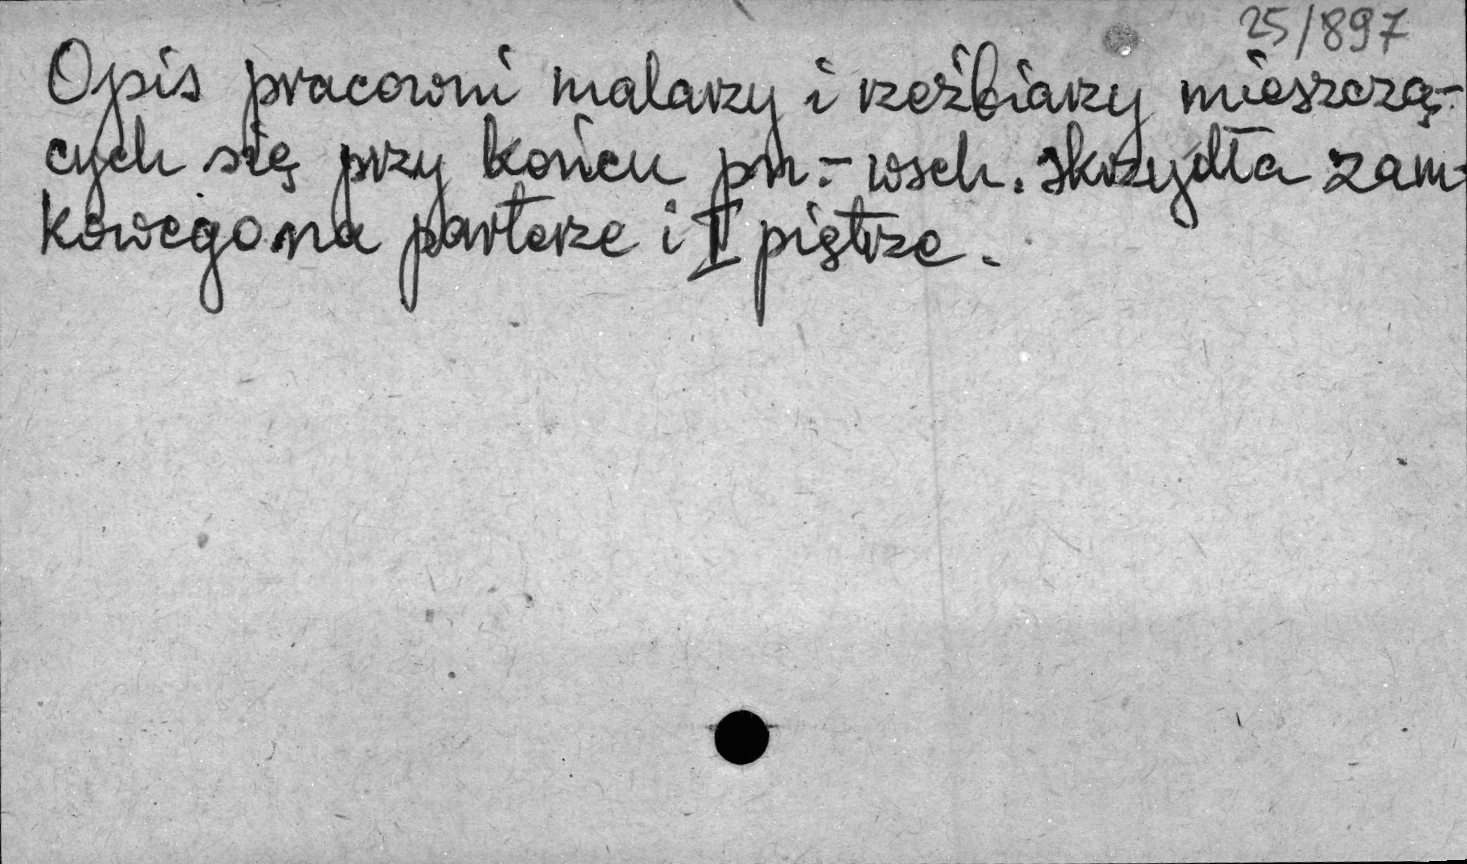 25/897
Opis pracowni malarzy i rzeźbiarzy mieszczą-
cych się przy końcu pn.-wsch. skrzydła zam-
kowego na parterze i II piętrze.